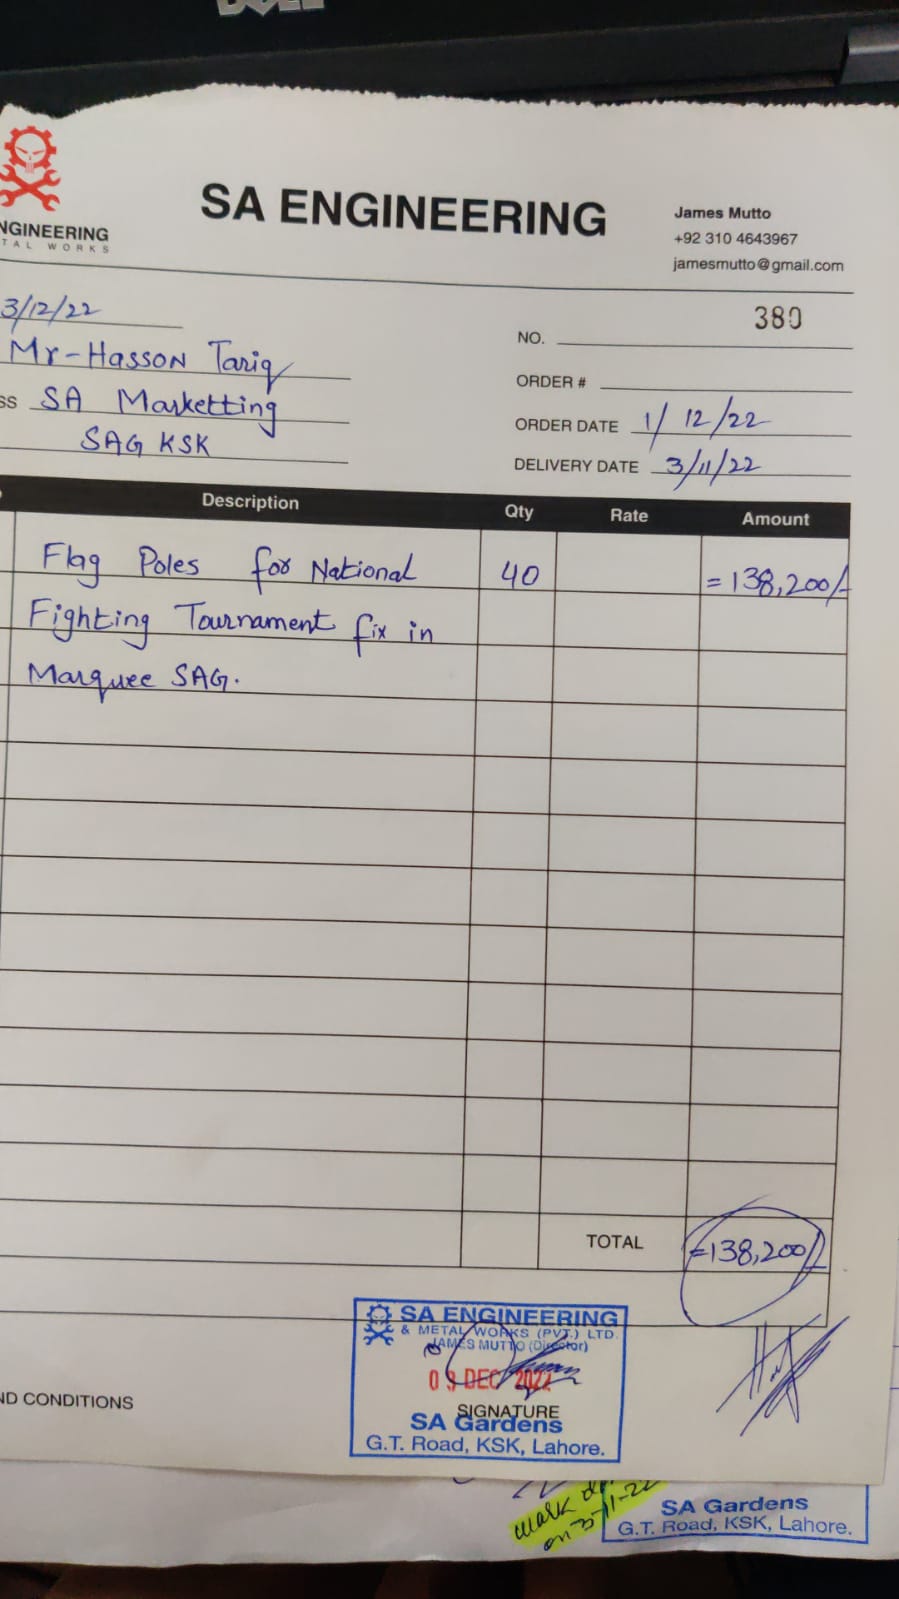 DELL
SA ENGINEERING
NGINEERING
TAL WORKS
James Mutto
+92 310 4643967
jamesmutto@gmail.com
3/12/22
Mr-Hasson Tariq
SS SA Marketting
SAG KSK
NO. 380
ORDER #
ORDER DATE 1/12/22
DELIVERY DATE 3/11/22
Description Qty Rate Amount
Flag Poles for National 40 =138,200/-
Fighting Tournament fix in
Marquee SAG.
TOTAL =138,200/-
SA ENGINEERING
& METAL WORKS (PVT.) LTD.
JAMES MUTTO (Director)
DEC 2022
SIGNATURE
SA Gardens
G.T. Road, KSK, Lahore.
ND CONDITIONS
on 3-11-22
SA Gardens
G.T. Road, KSK, Lahore.